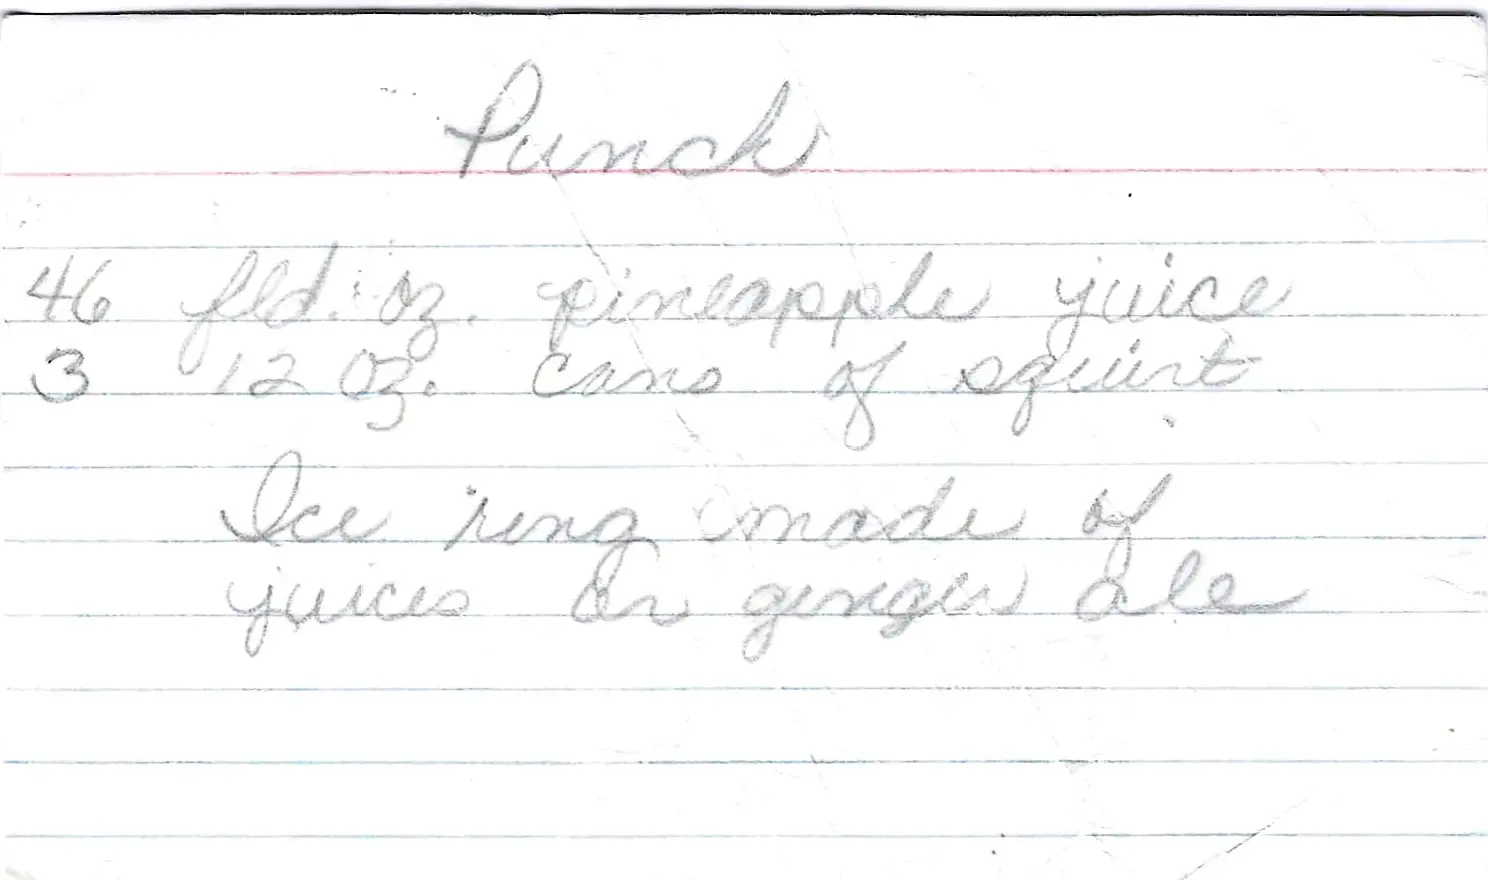 Punch
46 fld. oz. pineapple juice
3 12 oz. cans of squirt
Ice ring made of
juices or ginger ale